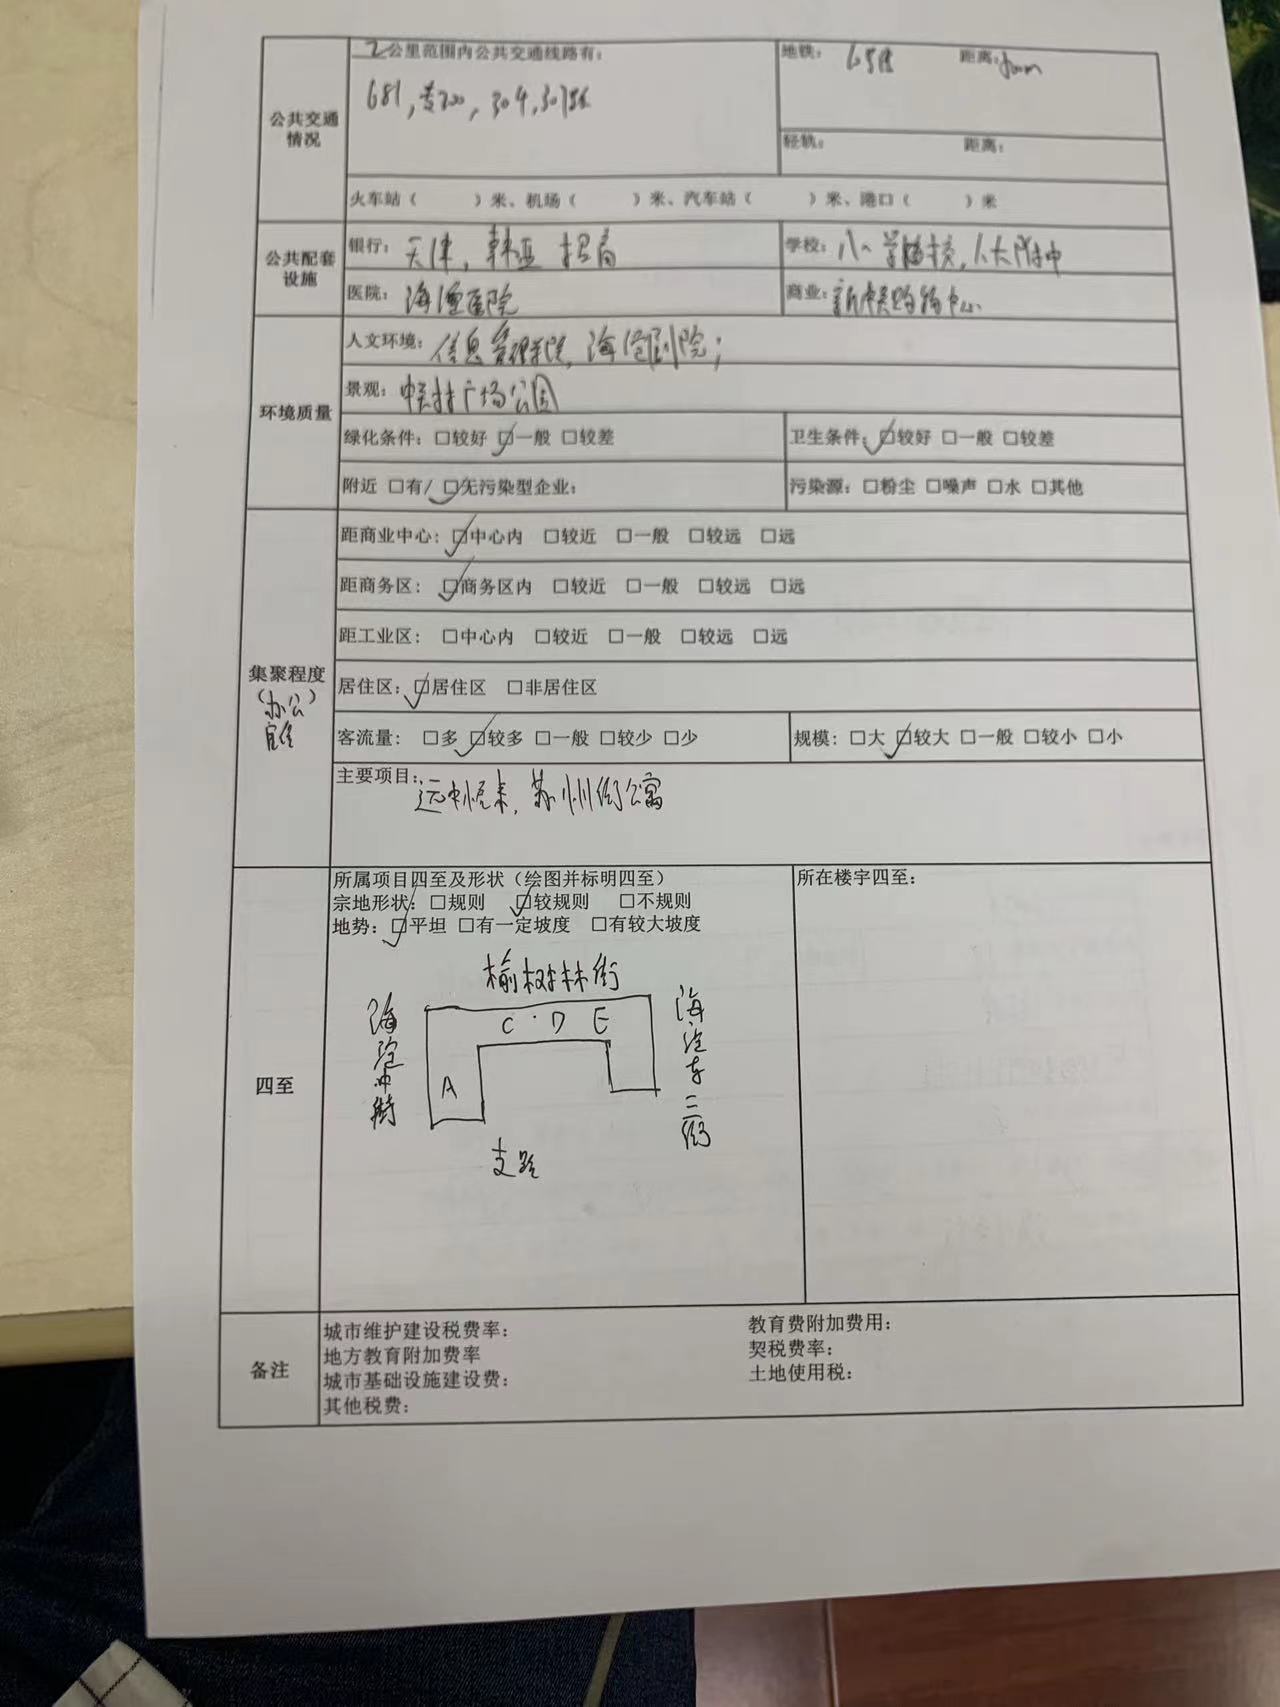 公共交通情况
2公里范围内公共交通线路有：
地铁： 距离：
681, 304,
轻轨： 距离：
火车站（ ）米、机场（ ）米、汽车站（ ）米、港口（ ）米
公共配套设施
银行：天津，韩亚 招商
学校：八一学校，人大附中
医院：海淀医院
商业：新中关购物中心
环境质量
人文环境：信息管理学院，海淀剧院；
景观：中关村广场公园
绿化条件：□较好 ☑一般 □较差
卫生条件：☑较好 □一般 □较差
附近 □有/ ☑无污染型企业：
污染源：□粉尘 □噪声 □水 □其他
集聚程度
（办公）
距商业中心：☑中心内 □较近 □一般 □较远 □远
距商务区：☑商务区内 □较近 □一般 □较远 □远
距工业区：□中心内 □较近 □一般 □较远 □远
居住区：☑居住区 □非居住区
客流量：□多 ☑较多 □一般 □较少 □少
规模：□大 ☑较大 □一般 □较小 □小
主要项目：
远中悦来，苏州街公寓
四至
所属项目四至及形状（绘图并标明四至）
宗地形状：□规则 ☑较规则 □不规则
地势：☑平坦 □有一定坡度 □有较大坡度
榆树林街
海淀中街
C · D E
A
海淀东二街
支路
所在楼宇四至：
备注
城市维护建设税费率：
教育费附加费用：
地方教育附加费率
契税费率：
城市基础设施建设费：
土地使用税：
其他税费：